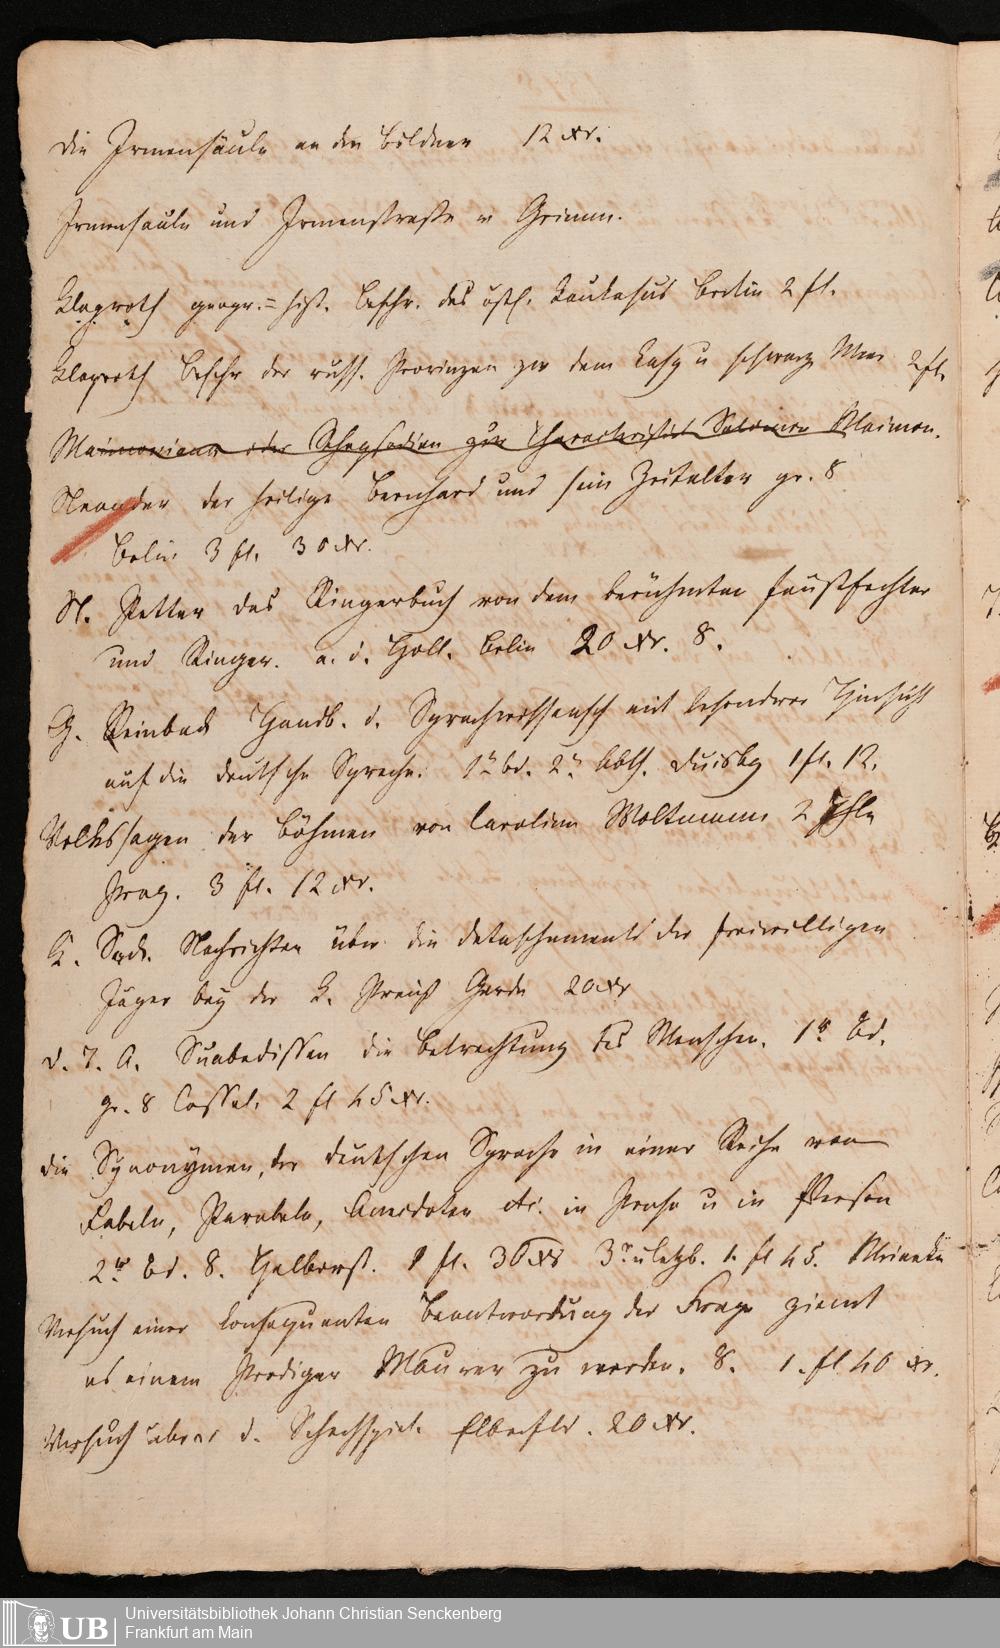 Die Irmensäule an den Bildner 12 xr.
Irmensaule und Irmenstraße v Grimm.
Klaproth geogr.= hist. Beschr. des östl. Kaukasus Berlin 2 fl.
Klaproth Beschr der russ. Provinzen zw dem Kasp u schwarz Meer 2 fl.
Maimoniana oder Rhapsodien zur Characteristik Salomon Maimon.
Neander der heilige Bernhard und sein Zeitalter gr. 8
Belin 3 fl. 30 xr.
N. Petter das Ringerbuch von dem berühmten Faustfechter
und Ringer. a. d. Holl. Belin 20 xr. 8.
G. Reinbeck Handb. d. Sprachwissensch mit besonderer Hinsicht
auf die deutsche Sprache. 1r bd. 2r Abth. Duisbg 1 fl. 12.
Volkssagen der Böhmen von Carolina Woltmann 2 Thle
Prag. 3 fl. 12 xr.
K. Nachrichten über die detaschements der freiwilligen
Jäger bey der K. Preuß Garde 20 xr
D. T. A. Suabedissen die Betrachtung des Menschen. 1r Bd.
gr. 8 Cassel. 2 fl 45 xr.
Die Synonymen, der deutschen Sprache in einer Reihe von
Fabeln, Parabeln, Anecdoten etc. in Prosa u in
2ter Bd. 8. Halberst. 1 fl. 30 xr 3r u letzb. 1. fl 45. Meineke
Versuch einer konsequenten Beantwordung der Frage ziemt
es einem Prediger Maurer zu werden. 8. 1. fl 40 xr.
Versuch über d. Schachspiel. Elberfeld. 20 xr.
Universitätsbibliothek Johann Christian Senckenberg
Frankfurt am Main
UB